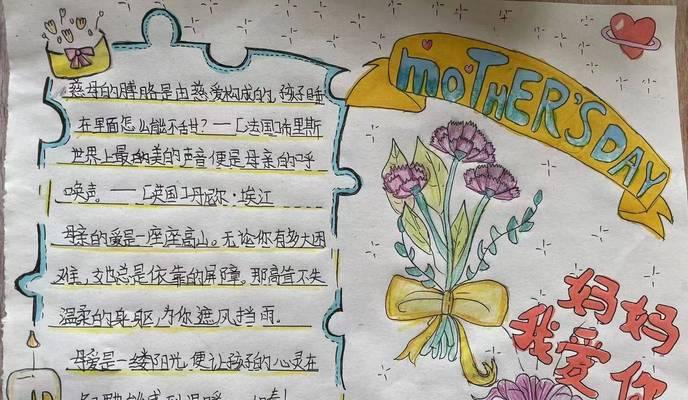 慈母的胳膊是由慈爱构成的，孩子睡
在里面怎么能不甜？——［法国］希里斯
世界上最美的声音便是母亲的呼
唤声。——［英国］丹尼尔·埃江
母亲的爱是一座座高山。无论你有多大困
难，她总是依靠的屏障。那高耸不失
温柔的身躯，为你遮风挡雨。
母爱是一缕阳光，便让孩子的心灵在
MOTHER'S DAY
妈妈
我爱你